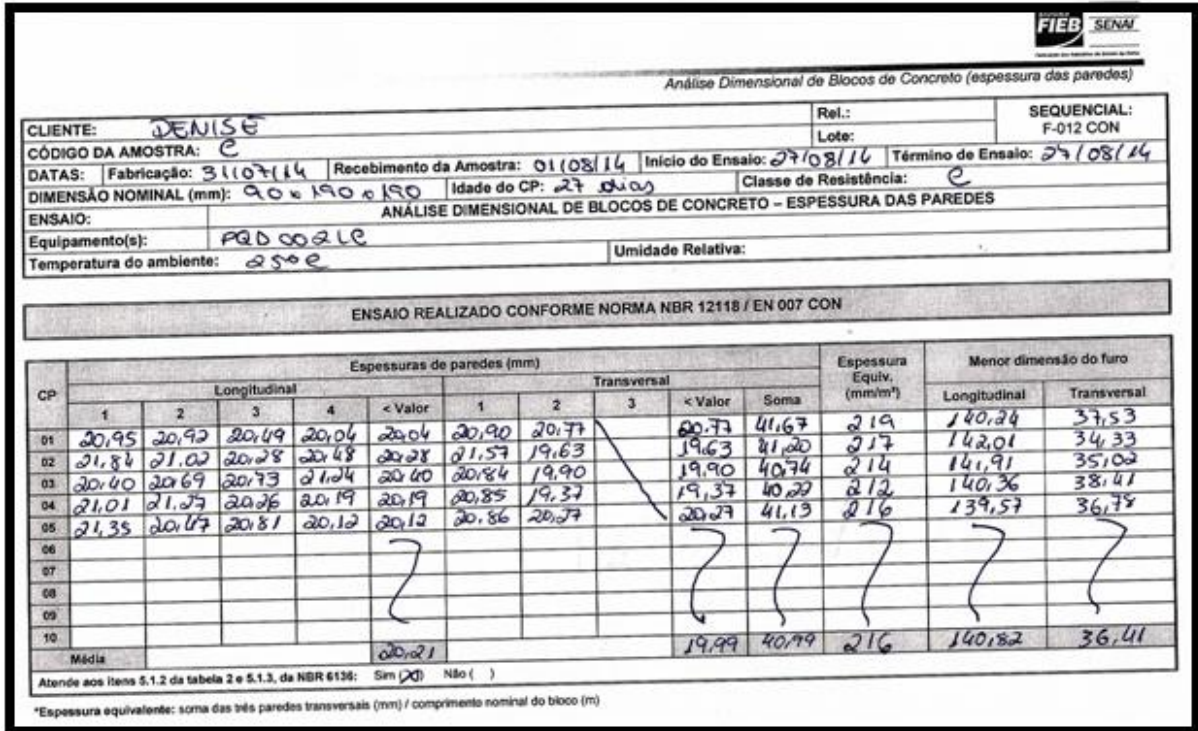 FIEB SENAI
Análise Dimensional de Blocos de Concreto (espessura das paredes)
CLIENTE: DENISE Rel.: SEQUENCIAL:
Lote: F-012 CON
CÓDIGO DA AMOSTRA: C
DATAS: Fabricação: 31/07/14 Recebimento da Amostra: 01/08/14 Início do Ensaio: 27/08/14 Término de Ensaio: 27/08/14
DIMENSÃO NOMINAL (mm): 90 x 190 x 190 Idade do CP: 27 dias Classe de Resistência: C
ENSAIO: ANÁLISE DIMENSIONAL DE BLOCOS DE CONCRETO – ESPESSURA DAS PAREDES
Equipamento(s): PQD 002LC
Temperatura do ambiente: 25°C Umidade Relativa:
ENSAIO REALIZADO CONFORME NORMA NBR 12118 / EN 007 CON
CP Espessuras de paredes (mm) Espessura Equiv. (mm/m*) Menor dimensão do furo
Longitudinal Transversal Longitudinal Transversal
1 2 3 4 < Valor 1 2 3 < Valor Soma
01 20,95 20,92 20,49 20,04 20,04 20,90 20,77 20,77 41,67 219 140,24 37,53
02 21,84 21,02 20,28 20,48 20,28 21,57 19,63 19,63 41,20 217 142,01 34,33
03 20,40 20,69 20,73 21,24 20,40 20,84 19,90 19,90 40,74 214 141,91 35,02
04 21,01 21,27 20,26 20,19 20,19 20,85 19,37 19,37 40,22 212 140,36 38,41
05 21,35 20,47 20,81 20,12 20,12 20,86 20,27 20,27 41,13 216 139,57 36,78
06
07
08
09
10
Média 20,21 19,99 40,99 216 140,82 36,41
Atende aos itens 5.1.2 da tabela 2 e 5.1.3, da NBR 6136: Sim (X) Não ( )
*Espessura equivalente: soma das três paredes transversais (mm) / comprimento nominal do bloco (m)